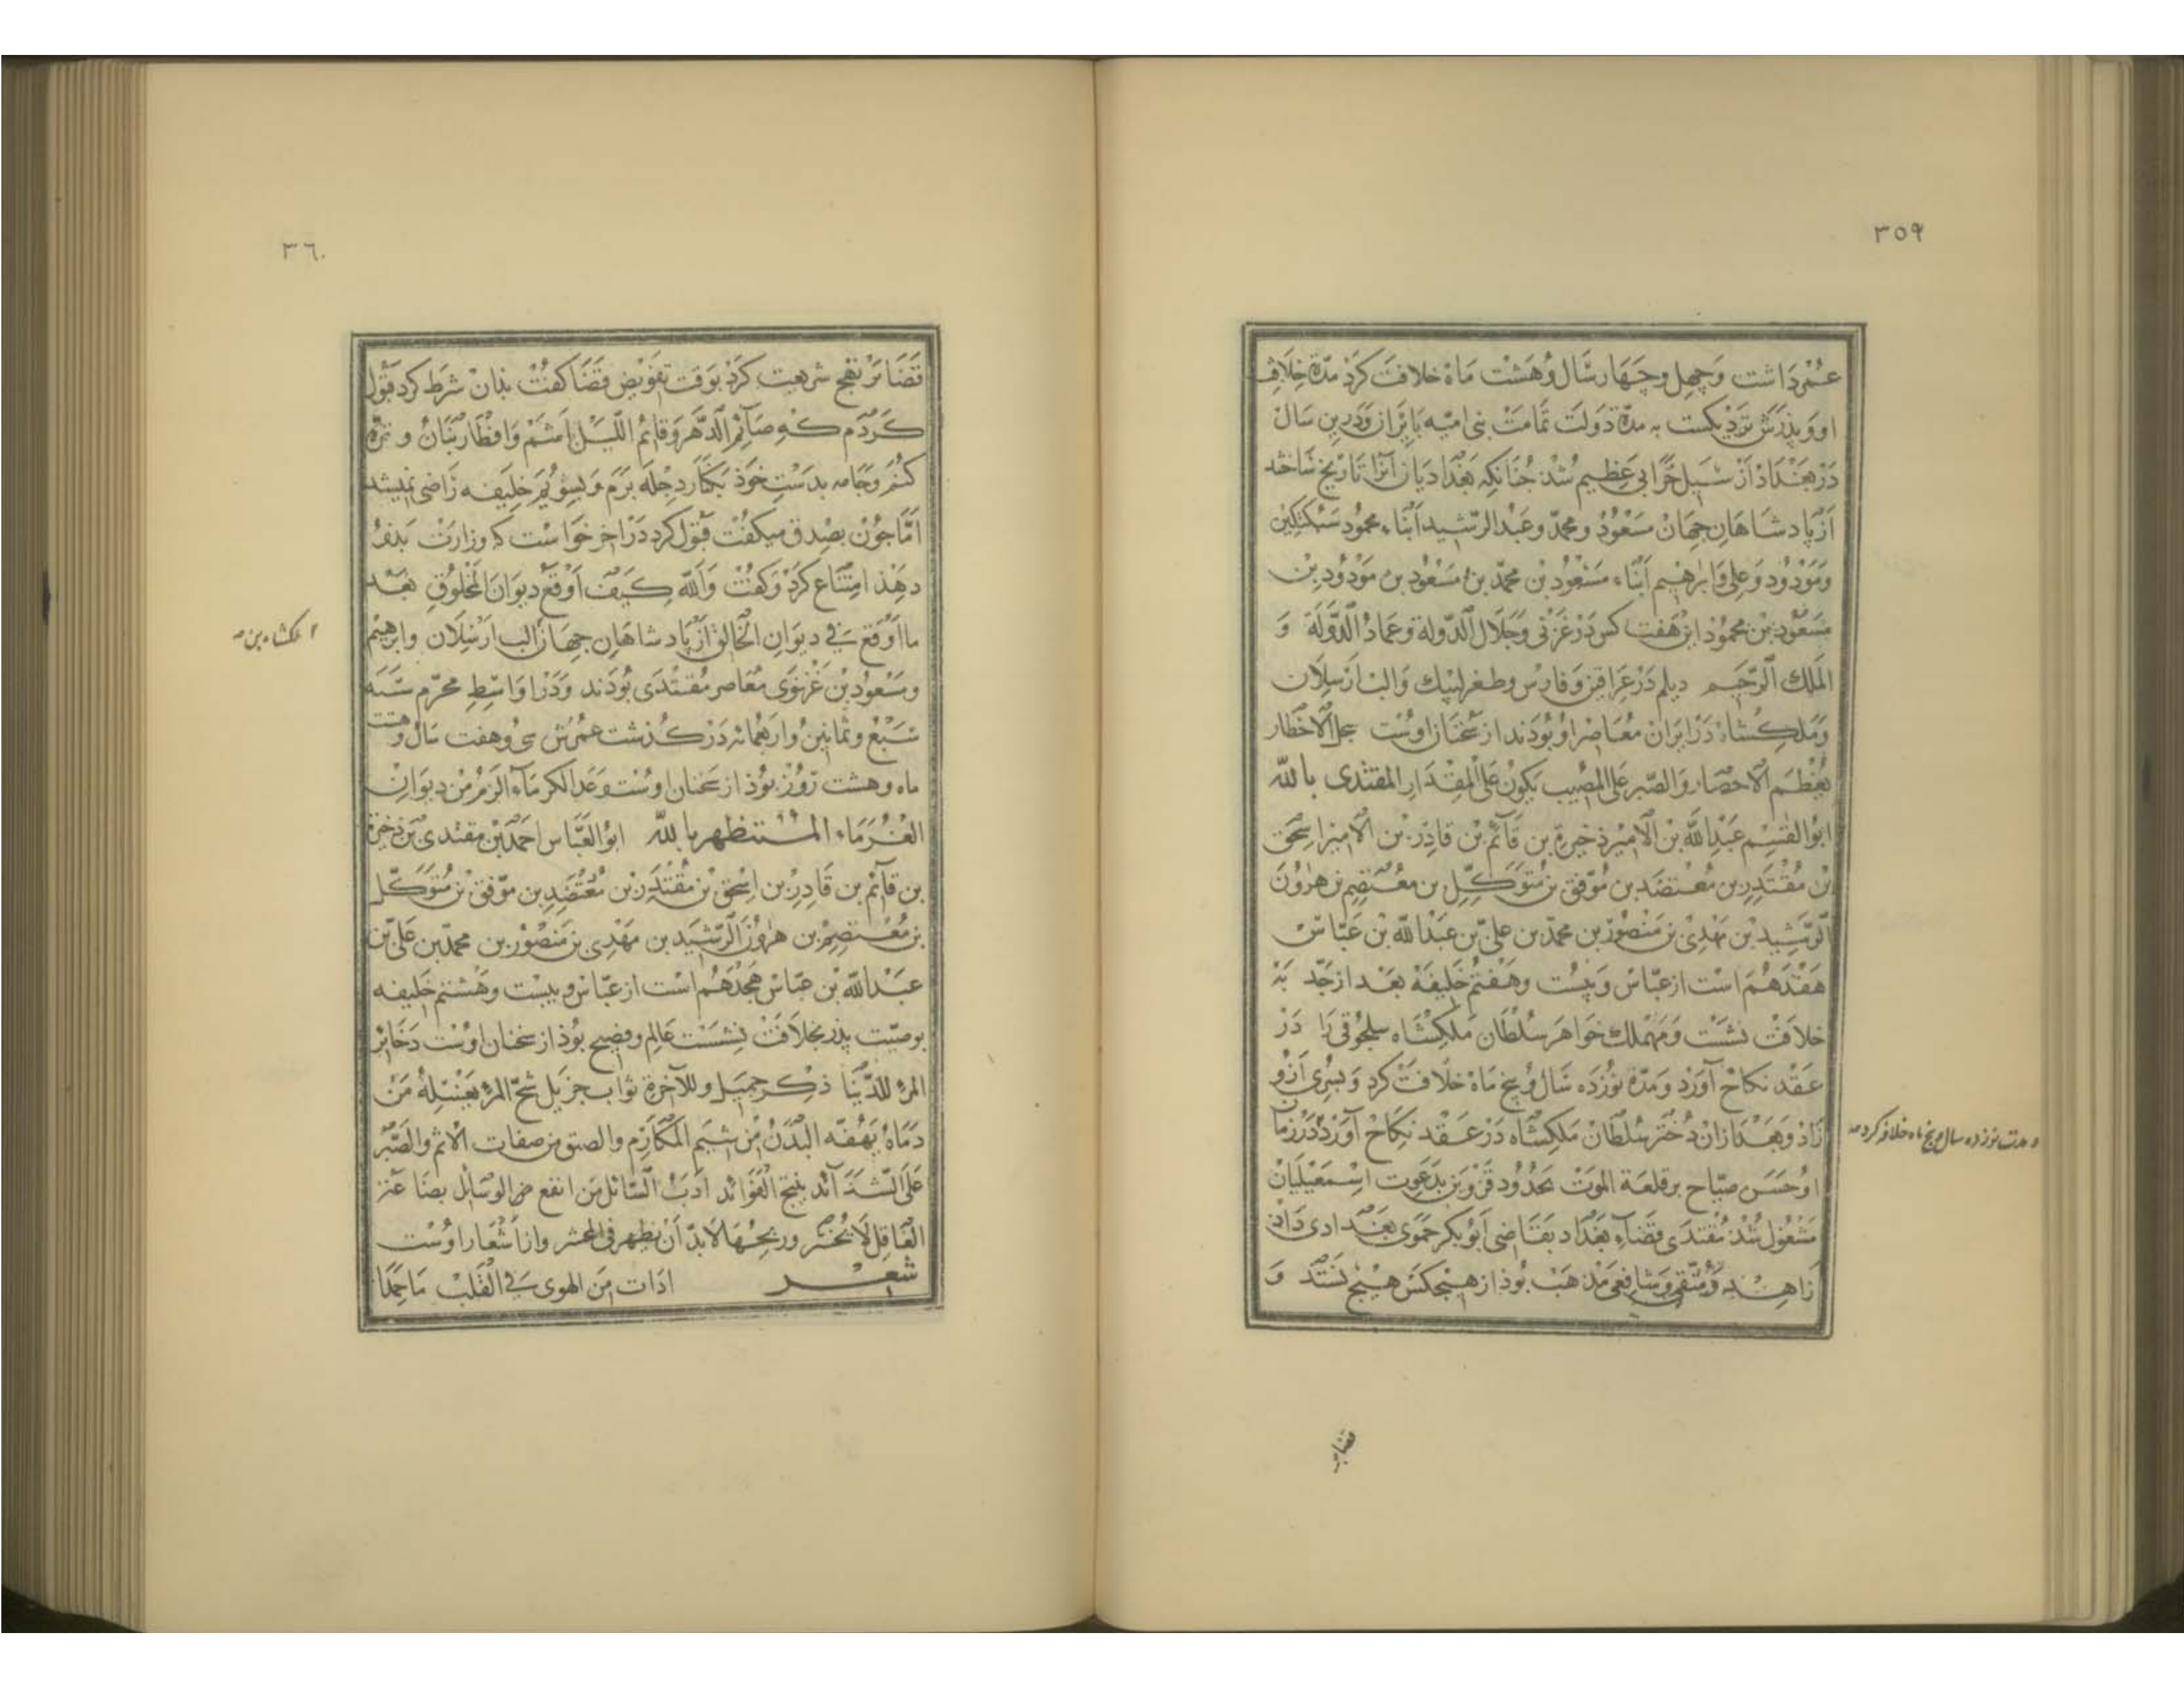 ٣٥٩
عمر داشت و چهل و چهار سال و هشت ماه خلافت کرد مدّة خلافت
او و پذرش نزدیکست به مدّة دولت تمامت بنی امیه بایران و درین سال
در بغداد از سیل خرابی عظیم شد جنانکه بغدادیان آنرا تاریخ ساختند
از پادشاهان جهان مسعود و محمّد و عبد الرشید ابناء محمود سبکتکین
و مودود و علی و ابرهیم ابناء مسعود بن محمّد بن مسعود بن مودود بن
مسعود بن محمود این هفت کس در غزنی و جلال الدّولة و عماد الدّولة و
الملك الرّحیم دیلم در عراقین و فارس و طغرلبیك و الب ارسلان
و ملکشاه در ایران معاصر او بوذند از سخنان اوست بحمل الاخطار
یعظم الاخطار و الصّبر علی المصیب یکون علی المقدار المقتدی بالله
ابو القسم عبد الله بن الامیر ذخیرة بن قائم بن قادر بن الامیر اسحق
بن مقتدر بن معتضد بن موفق بن متوکّل بن معتصم بن هرون
الرّشید بن مهدی بن منصور بن محمّد بن علی بن عبد الله بن عبّاس
هفدهم است از عبّاس و بیست و هفتم خلیفه بعد از جدّ به
خلافت نشست و مهملك خواهر سلطان ملکشاه سلجوقی را در
عقد نکاح آورد و مدّة نوزده سال و پنج ماه خلافت کرد و پسری ازو
زاد و بعد ازان دختر سلطان ملکشاه در عقد نکاح آورد در زمان
او حسن صبّاح بر قلعة الموت بحدود قزوین بدعوت اسمعیلیان
مشغول شد مقتدی قضاء بغداد بقاضی ابو بکر حموی بغدادی داد
زاهد و متّقی و شافعی مذهب بوذ از هیچکس هیچ نستد و
و مدت نوزده سال و پنج ماه خلافت کرد صه
قضا بر
٣٦٠
قضا بر نهج شریعت کرد بوقت تفویض قضا کفت بذان شرط کرد قبول
کردم که صائم الدّهر و قائم اللّیل باشم و افطار بنان و تره
کنم و جامه بدست خود بکنار دجله برم و بشویم خلیفه راضی نمیشد
امّا جون بصدق میکفت قبول کرد در اخر خواست که وزارت بدو
دهذ امتناع کرد و کفت و الله کیف اوقع دیوان المخلوق بعد
ما اوقع فی دیوان الخالق از پادشاهان جهان الب ارسلان و ابرهیم
و مسعود بن غزنوی معاصر مقتدی بوذند و در اواسط محرّم سنه
سبع و ثمانین و اربعمائه در کذشت عمرش سی و هفت سال و هشت
ماه و هشت روز بوذ از سخنان اوست وعد الکرماء الزم من دیوان
الغرماء المستظهر بالله ابو العبّاس احمد بن مقتدی بن ذخیرة
بن قائم بن قادر بن اسحق بن مقتدر بن معتضد بن موفق بن متوکّل
بن معتصم بن هرون الرّشید بن مهدی بن منصور بن محمّد بن علی بن
عبد الله بن عبّاس هجدهم است از عبّاس و بیست و هشتم خلیفه
بوصیّت پذر بخلافت نشست عالم و فصیح بوذ از سخنان اوست ذخائر
المرء للدّنیا ذکر جمیل و للآخرة ثواب جزیل شحّ المرء من
البدن من شیم المکارم و الصبر من صفات و الصّبر
علی الشّدائد ینتج الفوائد ادب السّائل من انفع من الوسائل بضاعة
العاقل لا تخسر و ربحها لا بدّ ان یظهر فی المحشر و از اشعار اوست
شعر اذاب من الهوی فی القلب ما جمدا
ملکشاه بن صه